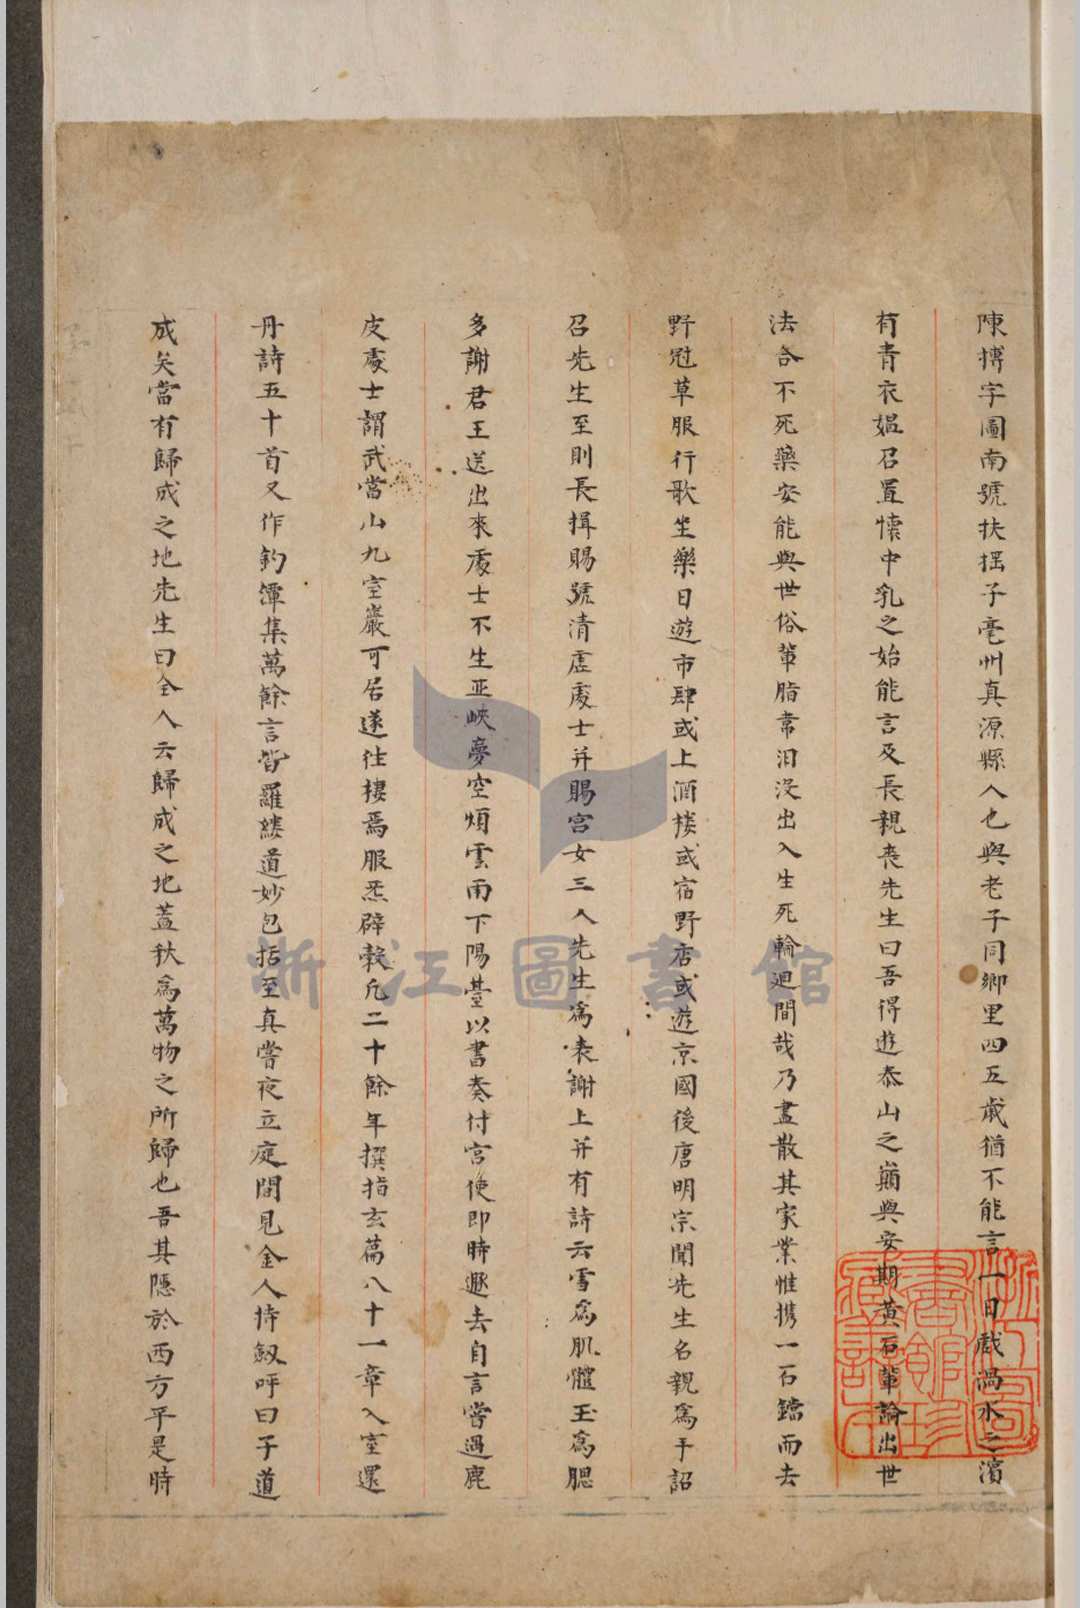 陳摶字圖南號扶揺子亳州真源縣人也與老子同鄉里四五歲猶不能言一日戲渦水之濱
有青衣媪召置懷中乳之始能言及長親喪先生曰吾得遊泰山之巔與安期黃石輩論出世
法合不死藥安能與世俗輩脂韋汨没出入生死輪迴間哉乃盡散其家業惟携一石鐺而去
野冠草服行歌坐樂日遊市肆或上酒楼或宿野店或遊京國後唐明宗聞先生名親為手詔
召先生至則長揖賜號清虛處士并賜宫女三人先生為表謝上并有詩云雪為肌體玉為腮
多謝君王送出來處士不生巫峽夢空煩雲雨下陽䑓以書奏付宫使即時遯去自言嘗遇鹿
皮處士謂武當山九室巖可居遂往棲焉服炁辟榖凡二十餘年撰指玄篇八十一章入室還
丹詩五十首又作釣潭集萬餘言皆羅縷道妙包括至真嘗夜立庭間見金人持劔呼曰子道
成矣當有歸成之地先生曰金人云歸成之地蓋秋為萬物之所歸也吾其隱於西方乎是時
浙江圖書館
浙江圖書館珍藏善本